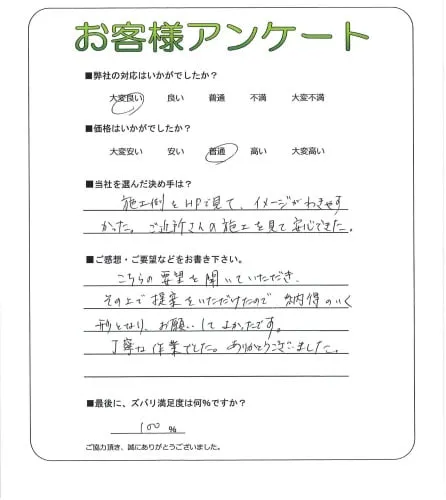 お客様アンケート
■弊社の対応はいかがでしたか？
大変良い 良い 普通 不満 大変不満
■価格はいかがでしたか？
大変安い 安い 普通 高い 大変高い
■当社を選んだ決め手は？
施工例をHPで見て、イメージがわきやす
かった。ご近所さんの施工を見て安心できた。
■ご感想・ご要望などをお書き下さい。
こちらの要望を聞いていただき、
その上で提案をいただけたので 納得のいく
形となり、お願いしてよかったです。
丁寧な作業でした。ありがとうございました。
■最後に、ズバリ満足度は何%ですか？
100 %
ご協力頂き、誠にありがとうございました。